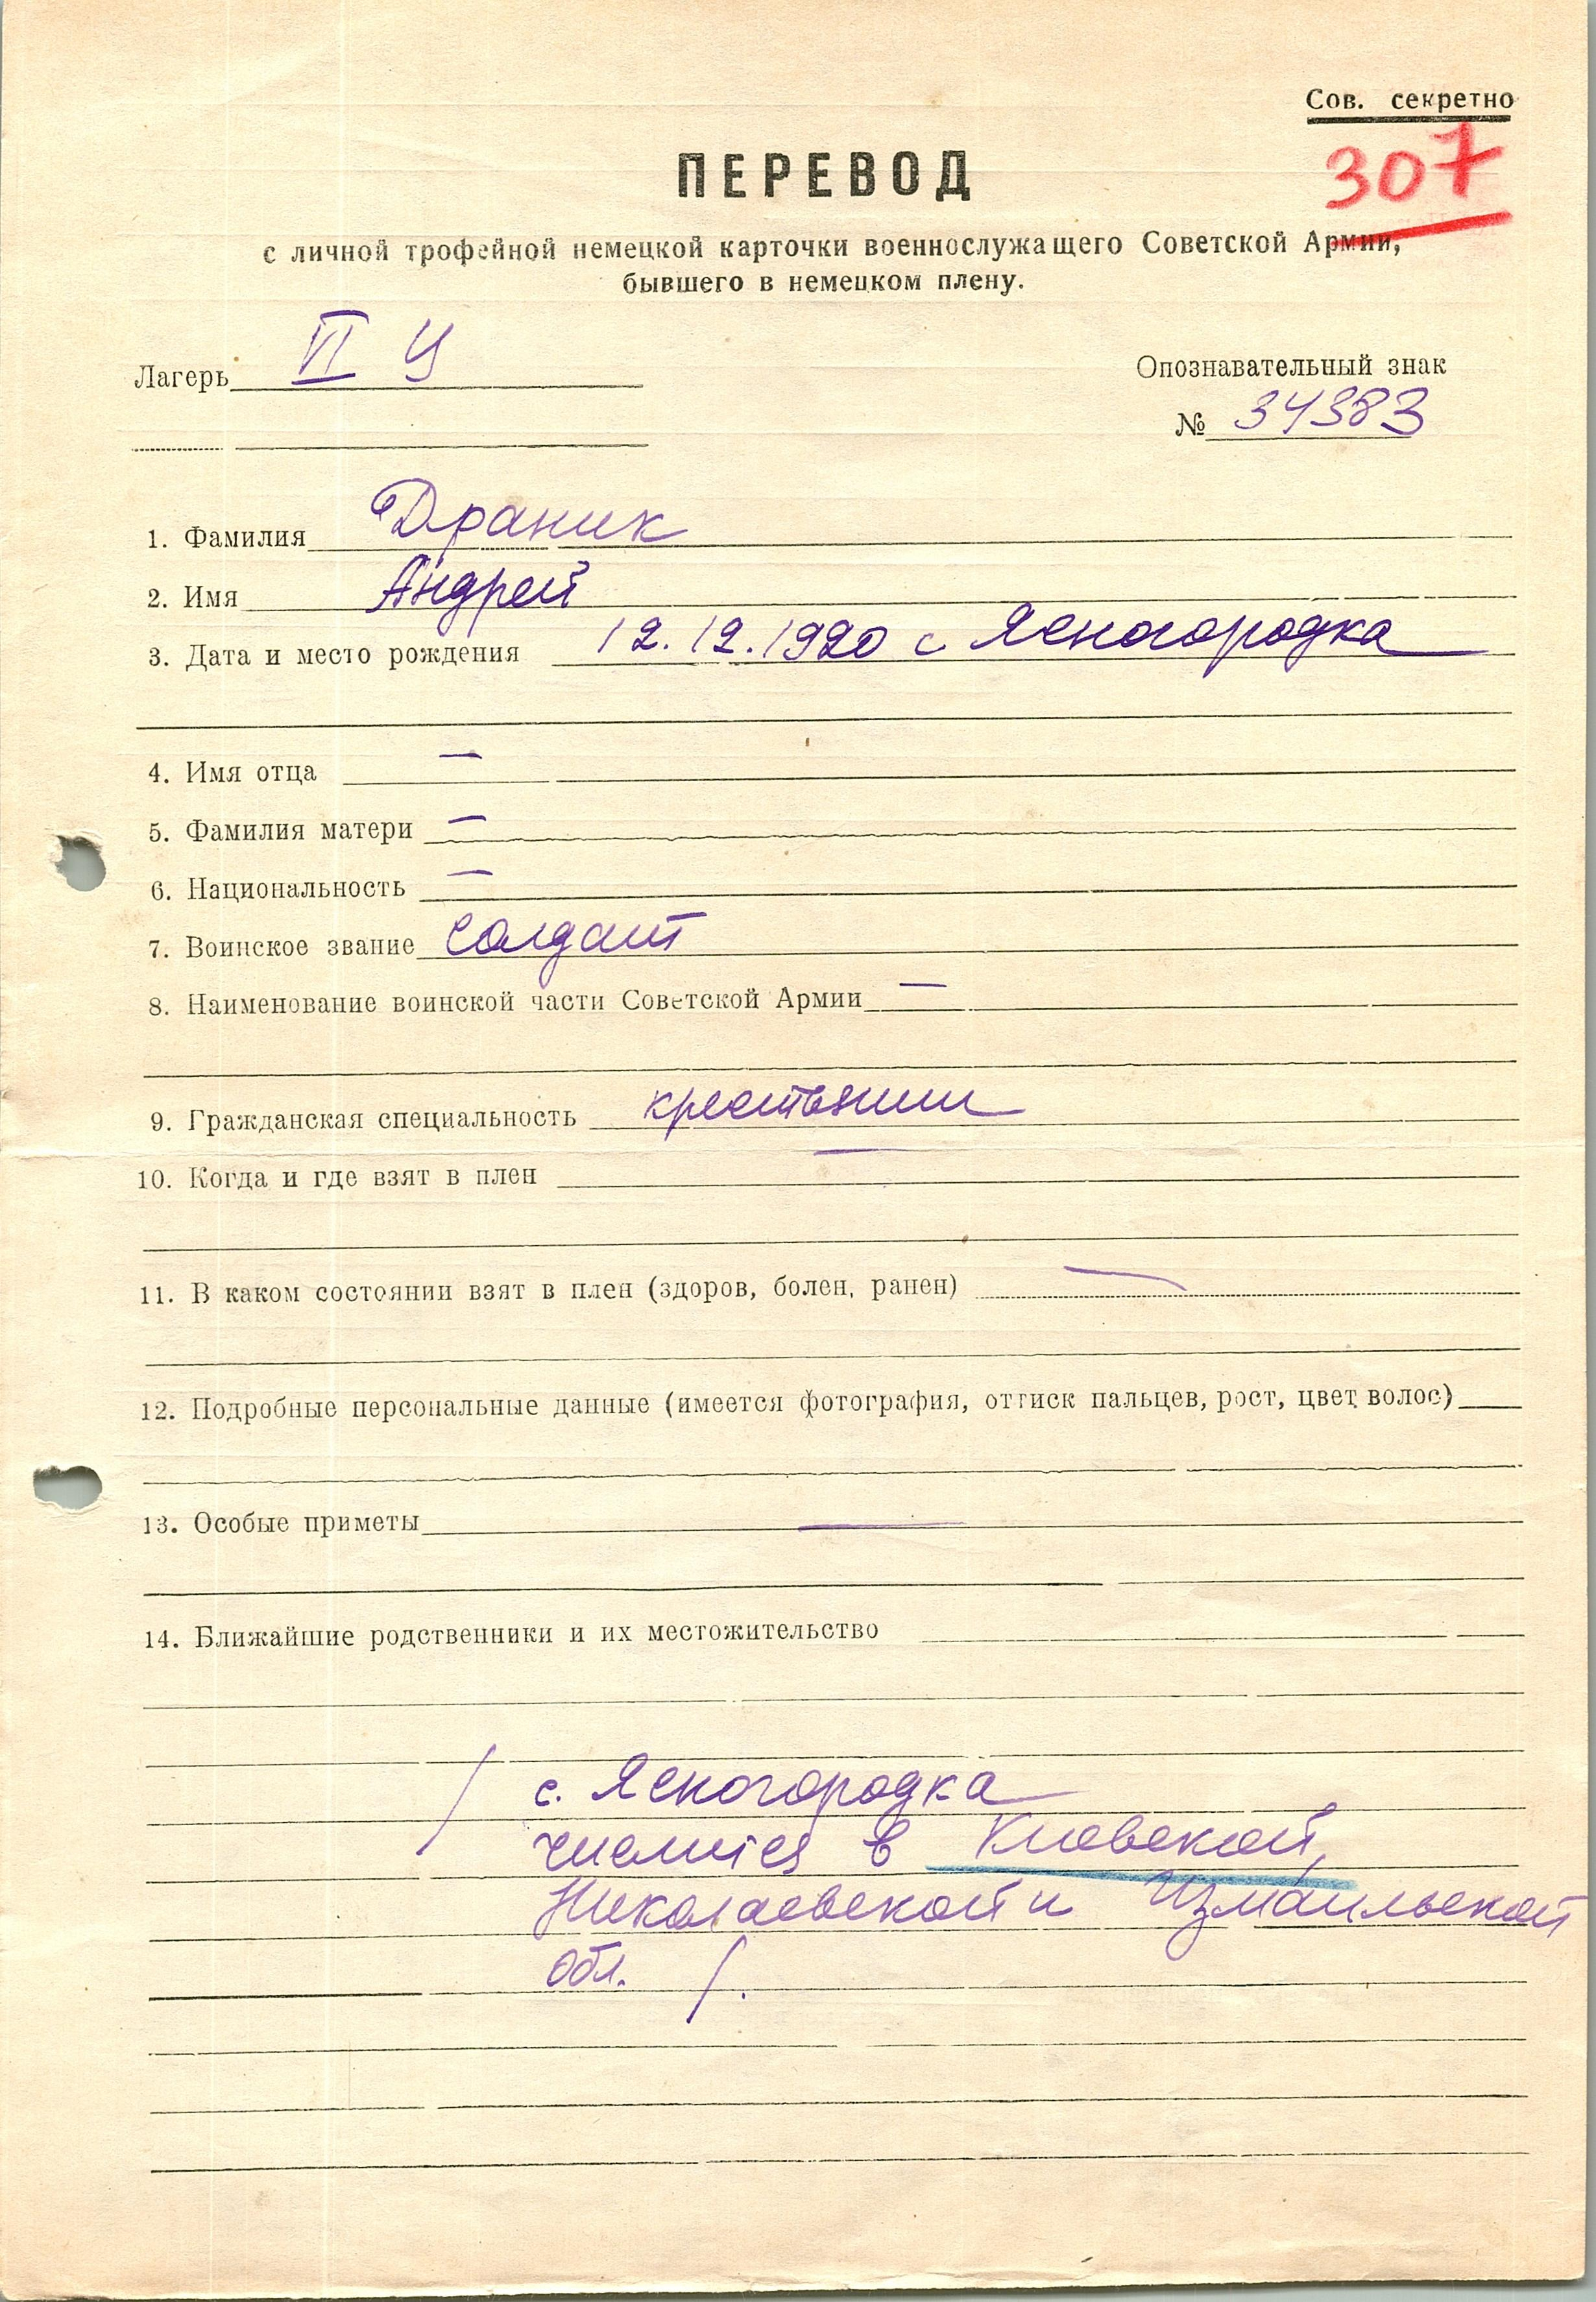 Сов. секретно
307
ПЕРЕВОД
с личной трофейной немецкой карточки военнослужащего Советской Армии,
бывшего в немецком плену.
Лагерь VI Ц
Опознавательный знак
№ 34383
1. Фамилия Драник
2. Имя Андрей
3. Дата и место рождения 12.12.1920 с Ясногородка
4. Имя отца —
5. Фамилия матери —
6. Национальность —
7. Воинское звание Солдат
8. Наименование воинской части Советской Армии —
9. Гражданская специальность крестьянин
10. Когда и где взят в плен —
11. В каком состоянии взят в плен (здоров, болен, ранен) —
12. Подробные персональные данные (имеется фотография, оттиск пальцев, рост, цвет волос)
13. Особые приметы —
14. Ближайшие родственники и их местожительство
/ с. Ясногородка
числится в Киевской,
Николаевской и Измаильской
обл. /.